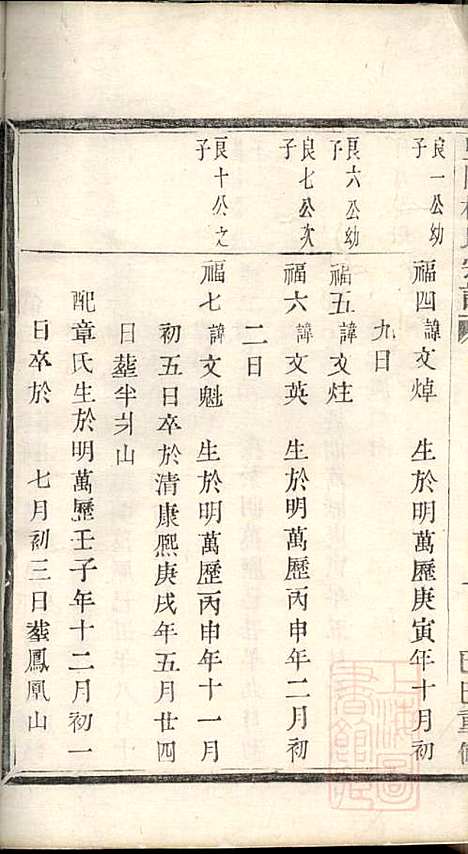 良一公幼
子
福四諱文焯 生於明萬曆庚寅年十月初
九日
良六公幼
子
福五諱文炷
良七公次
子
福六諱文英 生於明萬曆丙申年二月初
二日
良十公之
子
福七諱文魁 生於明萬曆丙申年十一月
初五日卒於清康熙庚戌年五月廿四
日塟半爿山
配章氏生於明萬曆壬子年十二月初一
日卒於 七月初三日塟鳳凰山
上海圖書館藏